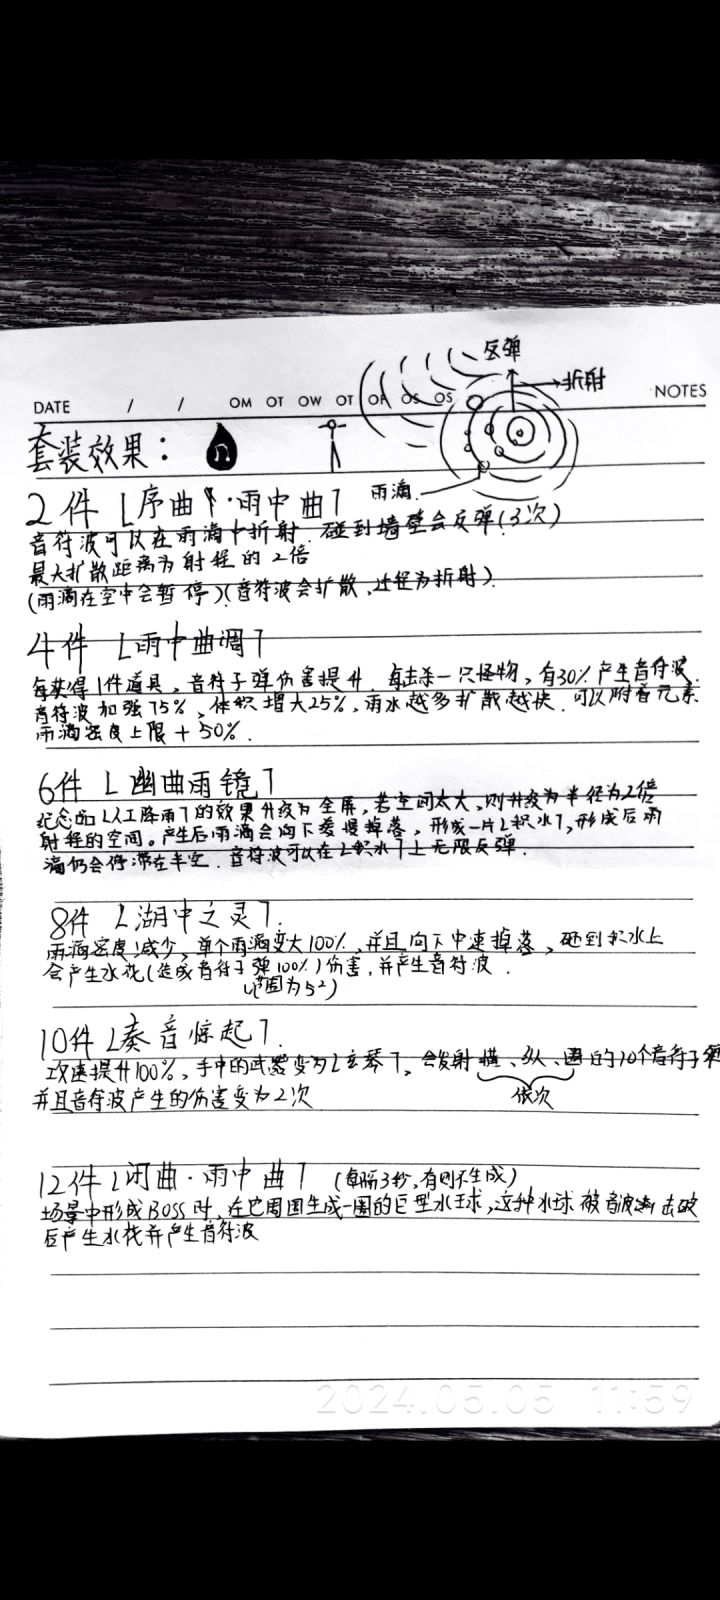 反弹
折射
DATE / / OM OT OW OT OF OS OS NOTES
套装效果：
雨滴
2件「序曲·雨中曲」
音符波可以在雨滴中折射．碰到墙壁会反弹(3次)
最大扩散距离为射程的2倍
(雨滴在空中会暂停)(音符波会扩散,过程为折射)
4件「雨中曲调」
每获得1件道具，音符子弹伤害提升．每击杀一只怪物，有30%产生音符波．
音符波加强75%，体积增大25%，雨水越多扩散越快．可以附着元素
雨滴密度上限+50%．
6件「幽曲雨镜」
纪念品「人工降雨」的效果升级为全屏，若空间太大，则升级为半径为2倍
射程的空间。产生后雨滴会向下缓慢掉落，形成一片「积水」,形成后雨
滴仍会停滞在半空．音符波可以在「积水」上无限反弹．
8件「湖中之灵」．
雨滴密度减少，单个雨滴变大100%，并且向下中速掉落，砸到积水上
会产生水花(造成音符子弹100%)伤害,并产生音符波．
(范围为5²)
10件「奏音惊起」．
攻速提升100%，手中的武器变为「玄琴」，会发射横、纵、的10个音符子弹
依次
并且音符波产生的伤害变为2次
12件「闭曲·雨中曲」(每隔3秒,有则不生成)
场景中形成BOSS时，在它周围生成一圈的巨型水球,这种水球被音波击破
后产生水花并产生音符波
2024.05.05 11:59